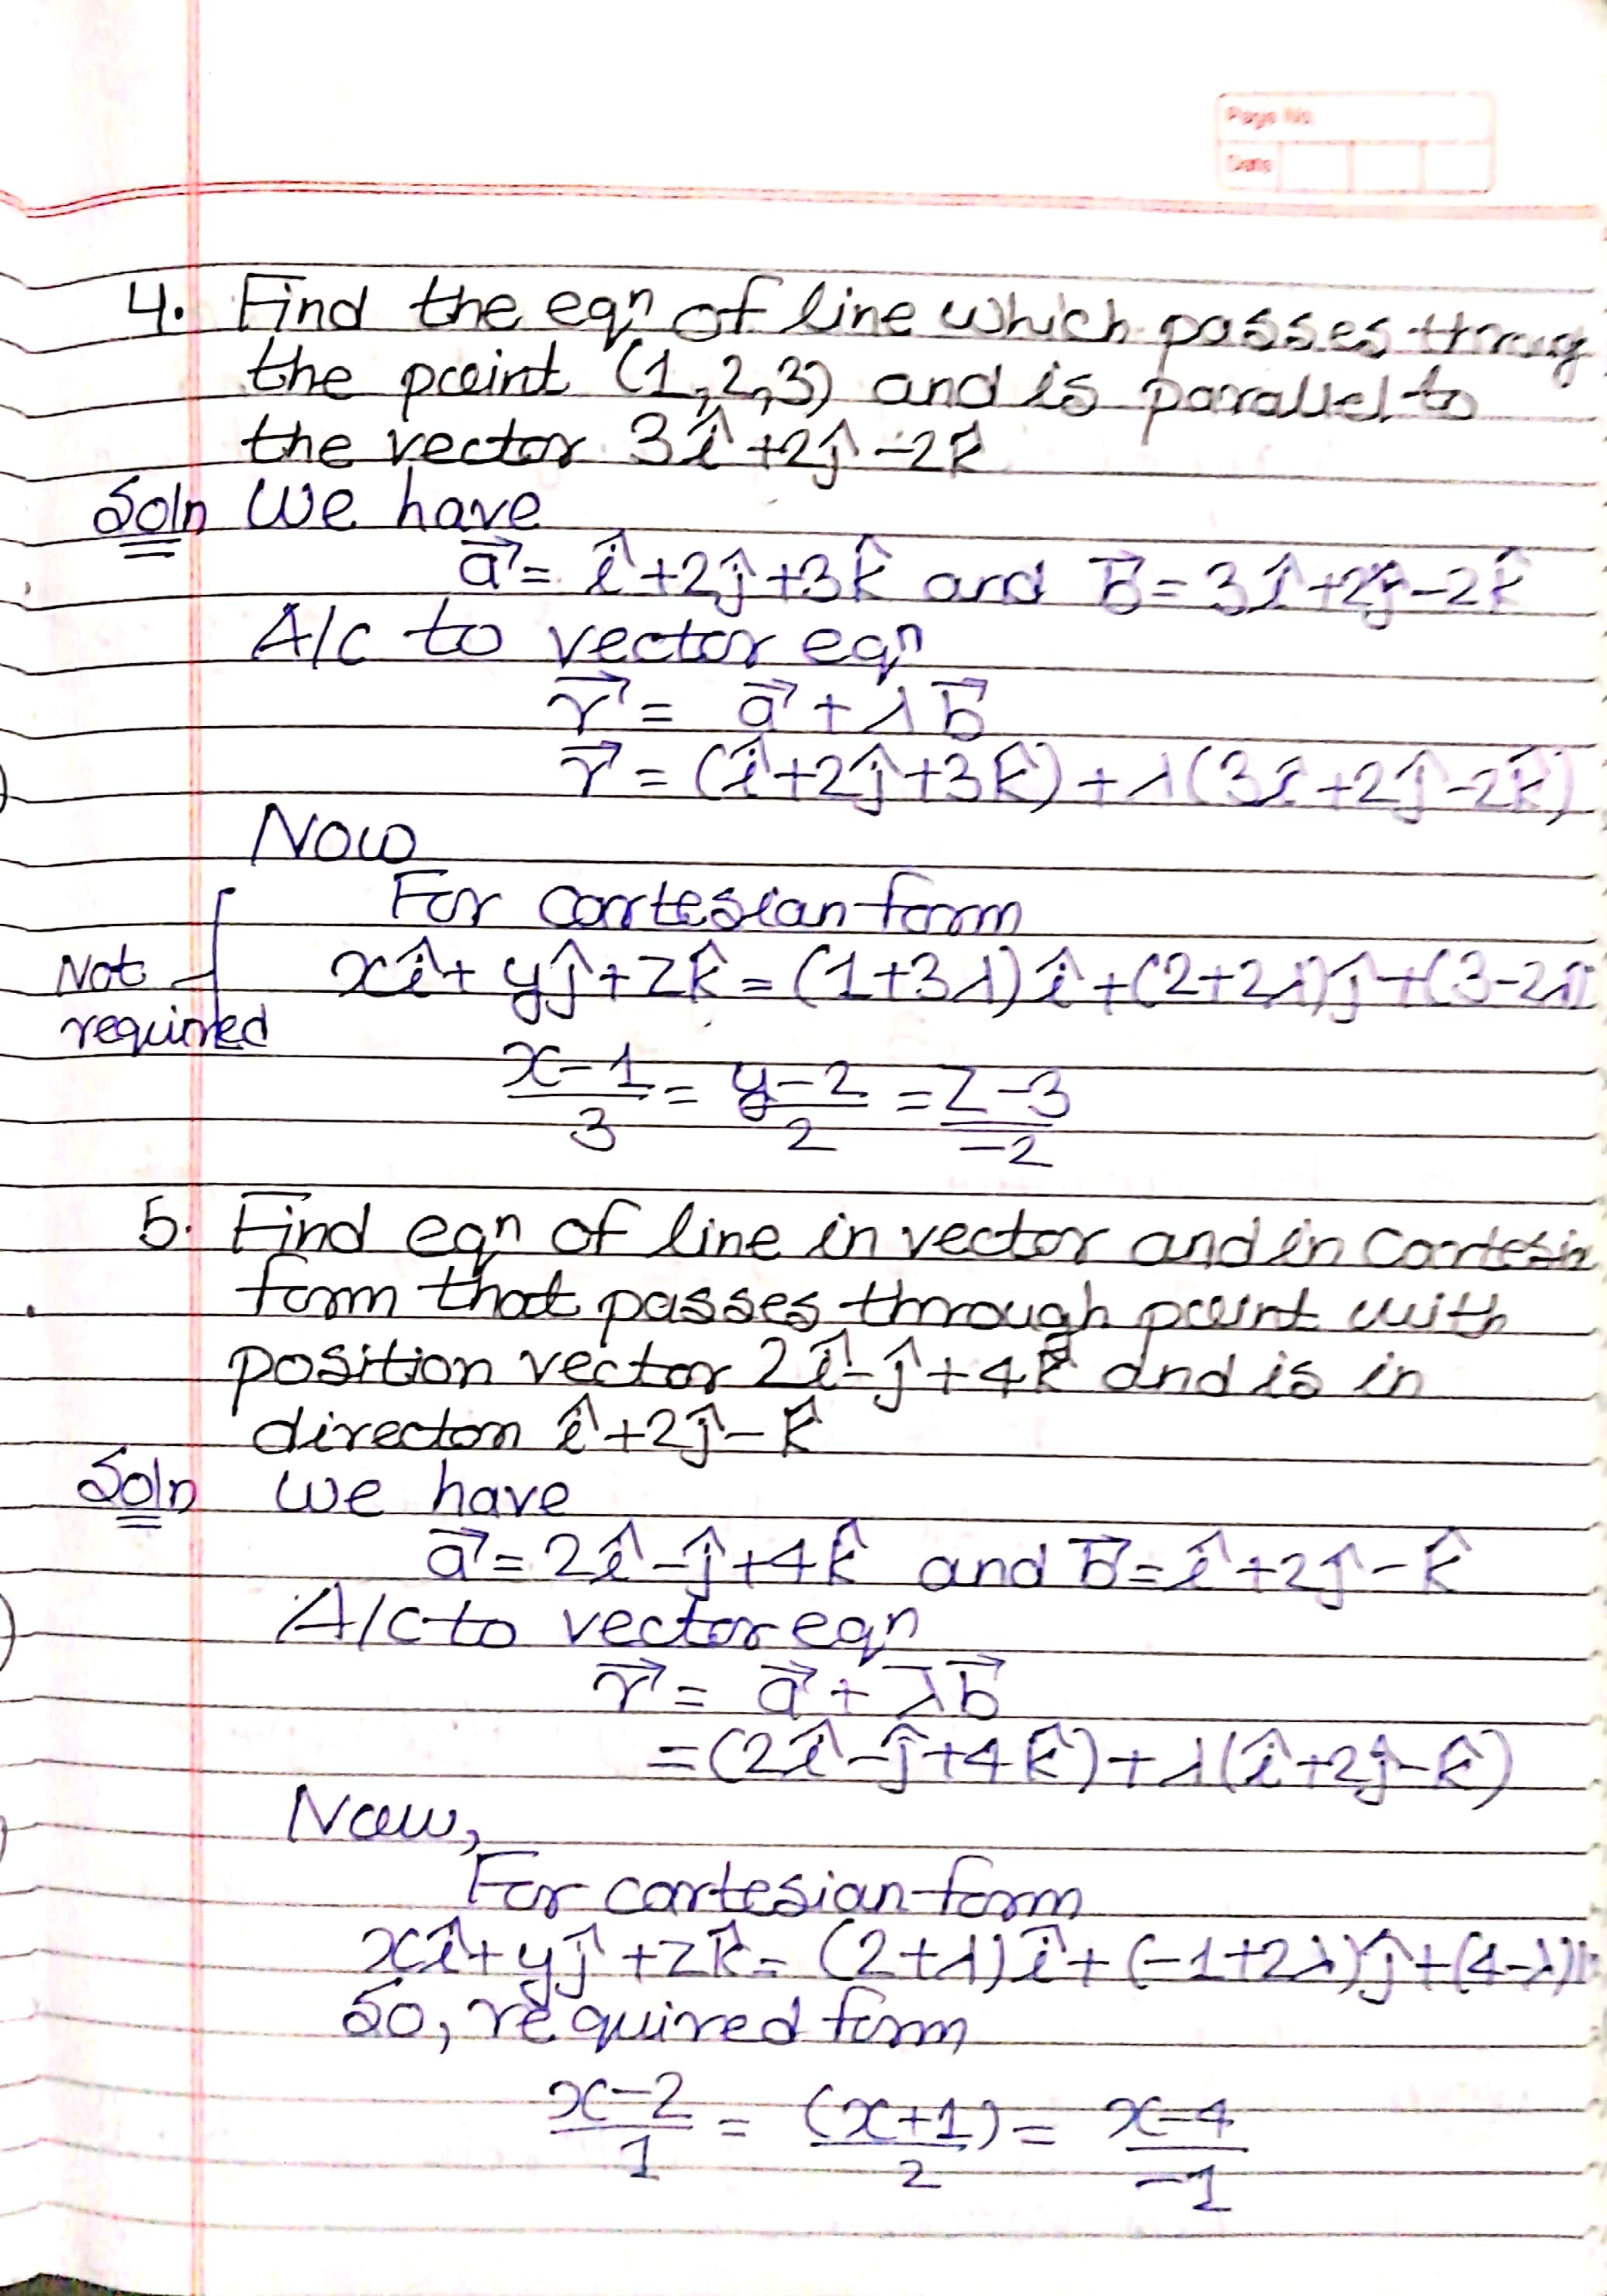 Page No.
Date
4. Find the eqⁿ of line which passes throug
the point (1,2,3) and is parallel to
the vector 3î+2ĵ-2k̂
Soln We have
a⃗ = î+2ĵ+3k̂ and b⃗ = 3î+2ĵ-2k̂
A/c to vector eqⁿ
r⃗ = a⃗ + λb⃗
r⃗ = (î+2ĵ+3k̂) + λ(3î+2ĵ-2k̂)
Now
For cartesian form
Not required
xî + yĵ + zk̂ = (1+3λ)î + (2+2λ)ĵ + (3-2λ)
x-1/3 = y-2/2 = z-3/-2
5. Find eqⁿ of line in vector and in Cartesia
form that passes through point with
position vector 2î-ĵ+4k̂ and is in
directon î+2ĵ-k̂
Soln We have
a⃗ = 2î-ĵ+4k̂ and b⃗ = î+2ĵ-k̂
A/c to vector eqⁿ
r⃗ = a⃗ + λb⃗
= (2î-ĵ+4k̂) + λ(î+2ĵ-k̂)
Now,
For cartesian form
xî + yĵ + zk̂ = (2+λ)î + (-1+2λ)ĵ + (4-λ)
So, required form
x-2/1 = (x+1)/2 = x-4/-1